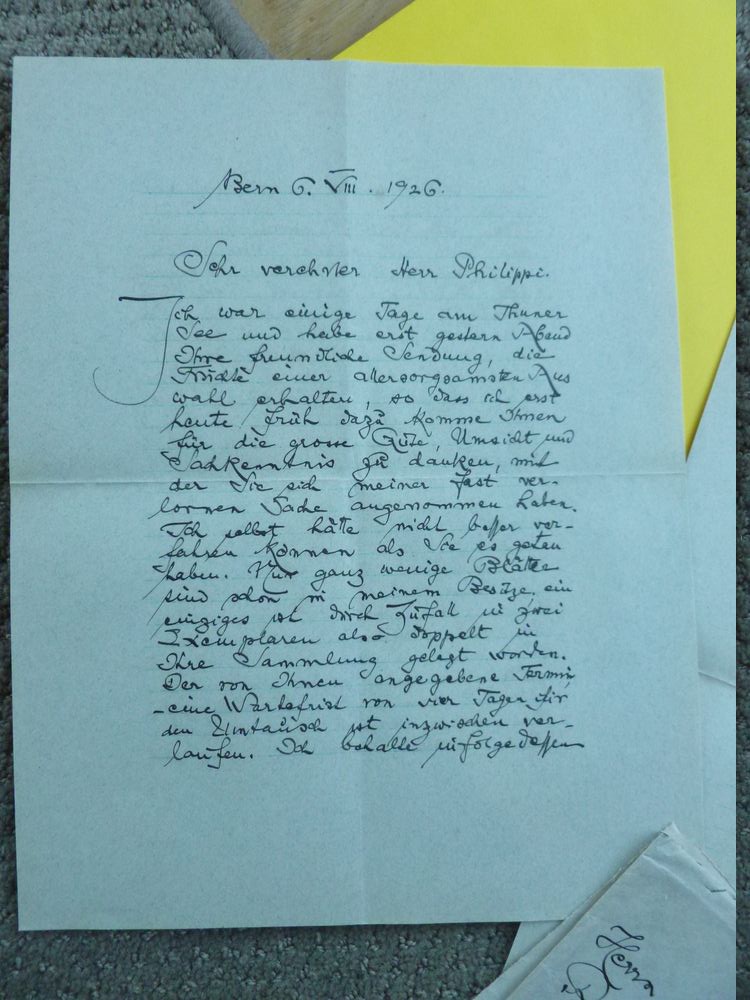 Bern 6. VIII. 1926.
Sehr verehrter Herr Philippi.
Ich war einige Tage am Thuner
See und habe erst gestern Abend
Ihre freundliche Sendung, die
Früchte einer allersorgsamsten Aus
wahl erhalten, so dass ich erst
heute früh dazu komme Ihnen
für die grosse Güte, Umsicht und
Sachkenntnis zu danken, mit
der Sie sich meiner fast ver-
lornen Sache angenommen haben.
Ich selbst hätte nicht besser ver-
fahren können als Sie es getan
haben. Nur ganz wenige Blätter
sind schon in meinem Besitze, ein
einziges ist durch Zufall in zwei
Exemplaren also doppelt in
Ihre Sammlung gelegt worden.
Der von Ihnen angegebene Termin
- eine Wartefrist von vier Tagen für
den Umtausch ist inzwischen ver-
laufen. Ich behalte infolgedessen
Herrn